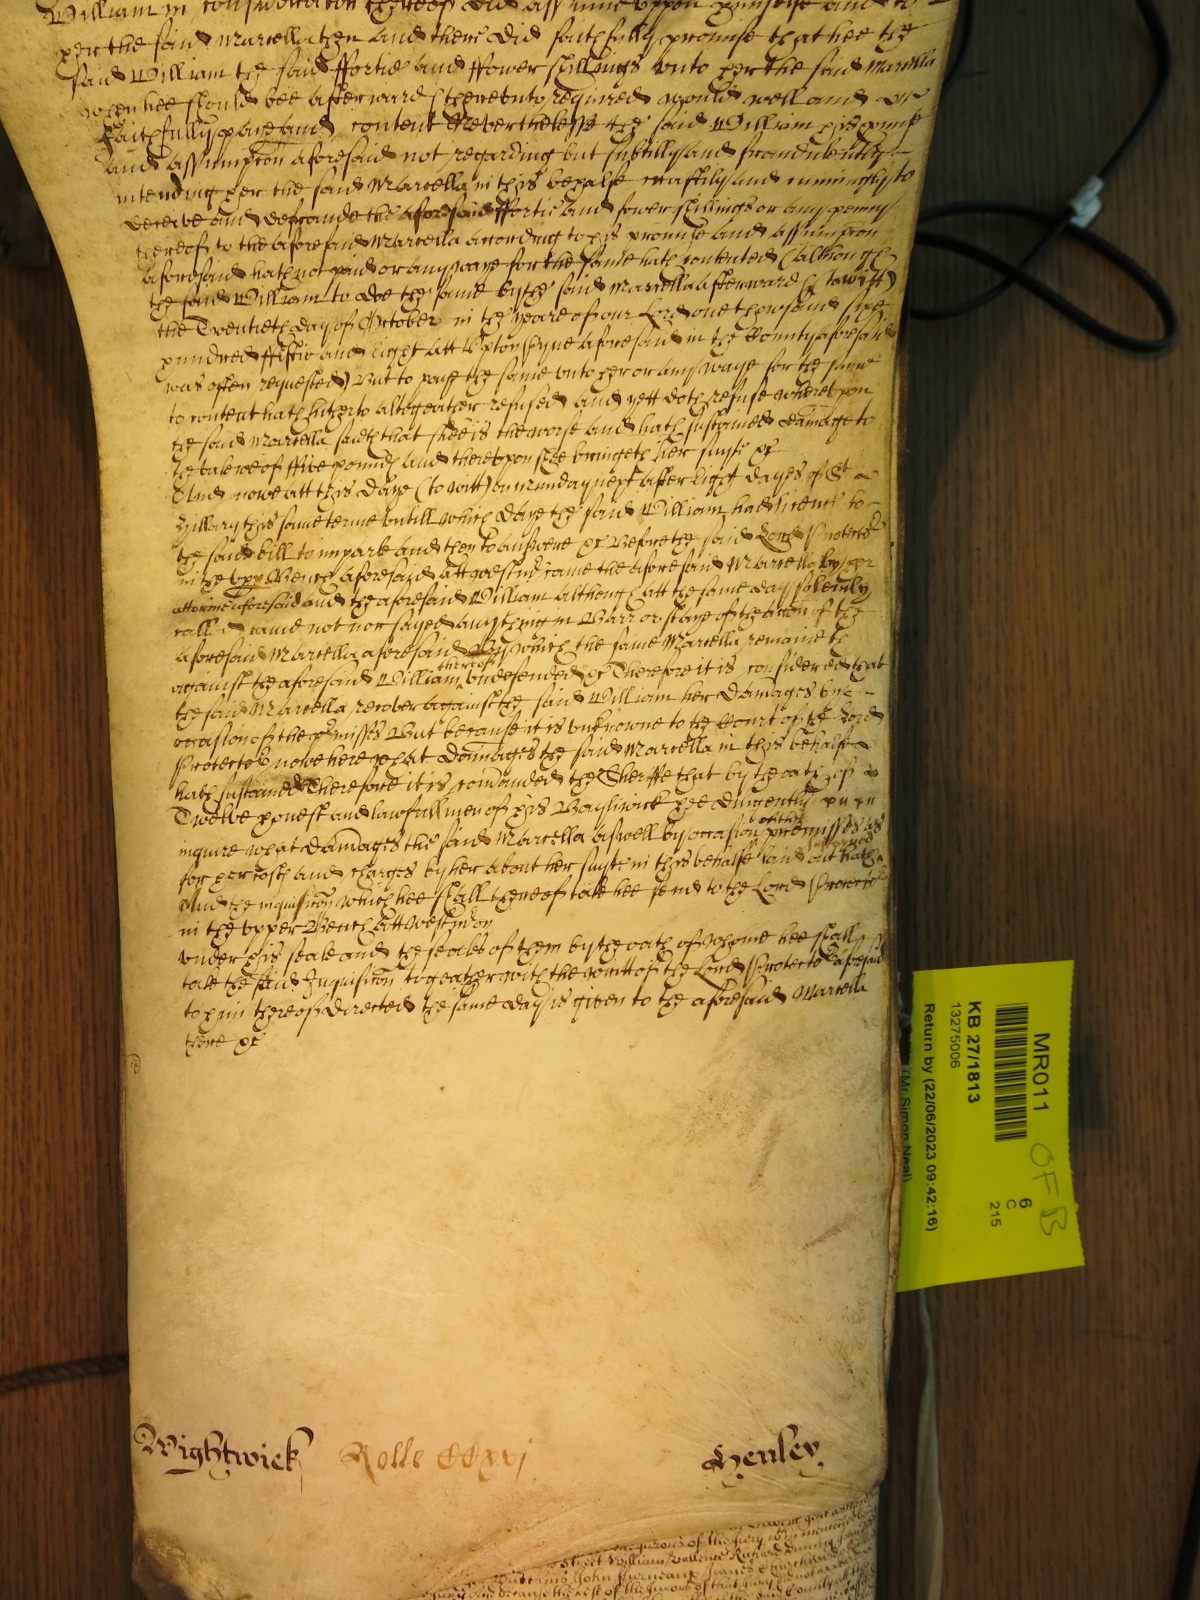 William in consideracon thereof did assume uppon himselfe and to
her the said Marcella then and there did faithfully promise that hee the
said William the said ffortie and ffower shillings unto her the said Marcella
when hee should bee afterwards thereunto required would well and
faithfully paye and content Neverthelesse the said William his promise
and assumpcon aforesaid not regarding but subtilly and fraudulently
intending her the said Marcella in this behalfe craftily and cunningly to
deceive and defraude the aforesaid ffortie and fower shillings or any penny
thereof to the aforesaid Marcella according to his promise and assumpcon
aforesaid hath not paid or any waye for the same hath contented (although
the said William to doe the same by the said Marcella afterwards (to witt)
the Twentieth day of October in the yeare of our Lord one thowsand sixe
hundred ffiftie and eight att Upton Pyne aforesaid in the County aforesaid
was often requested) But to paye the same unto her or any waye for the same
to content hath hitherto altogeather refused and yett doth refuse whereupon
the said Marcella saith that shee is the worse and hath susteined damage to
the valewe of ffive pounds and thereupon shee bringeth her suyte &c
And nowe att this daye (to witt) on munday next after eight dayes of St
Hillary this same terme untill which daye the said William had licence to
the said bill to imparle and then to answere &c Before the said Lord Protector
in the upp Bench aforesaid att Westmr came the aforesaid Marcella by her
attorney aforesaid and the aforesaid William although att the same day solemly
called came not nor sayed any thing in Barr or staye of the accon of the
aforesaid Marcella aforesaid By which the same Marcella remaineth
against the aforesaid William thereof undefended &c Therefore it is considered that
the said Marcella recover against the said William her damages by
occasion of the pmisses But because it is unknowne to the Court of the Lord
Protector nowe here what damages the said Marcella in this behalfe
hath susteined Therefore it is comanded the Sheriffe that by the oath of
Twelve honest and lawfull men of his Bayliwick hee diligently
inquire what damages the said Marcella aswell by occasion of the premisses as
for her costs and charges by her about her suyte in this behalfe laid out hath susteined
And the inquisicon which hee shall thereof take hee send to the Lord Protector
in the upper Bench att Westmr on
under his seale and the seales of them by the oath of whome hee shall
take the said Inquisicon togeather with the writt of the Lord Protector aforesaid
to him thereof directed the same day is given to the aforesaid Marcella
there &c
Wightwick Rolle CCxvj Henley
MR011
OFB
6
C
215
KB 27/1813
13275006
Return by (22/06/2023 09:42:16)
(Mr Simon Neal)